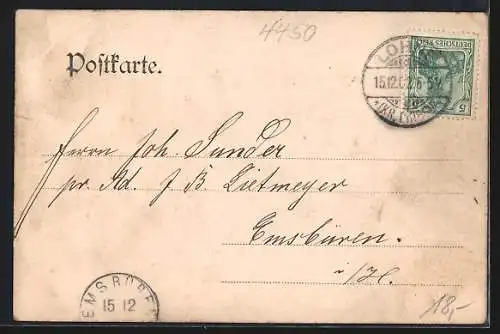 4450
Postkarte.
LOHNE
15.12.02. 6-
DEUTSCHES REICH
5
Herrn Joh. Sander
pr. Ad. J B Tietmeyer
Emsbüren.
i/H.
EMSBÜREN
15 12
18,-